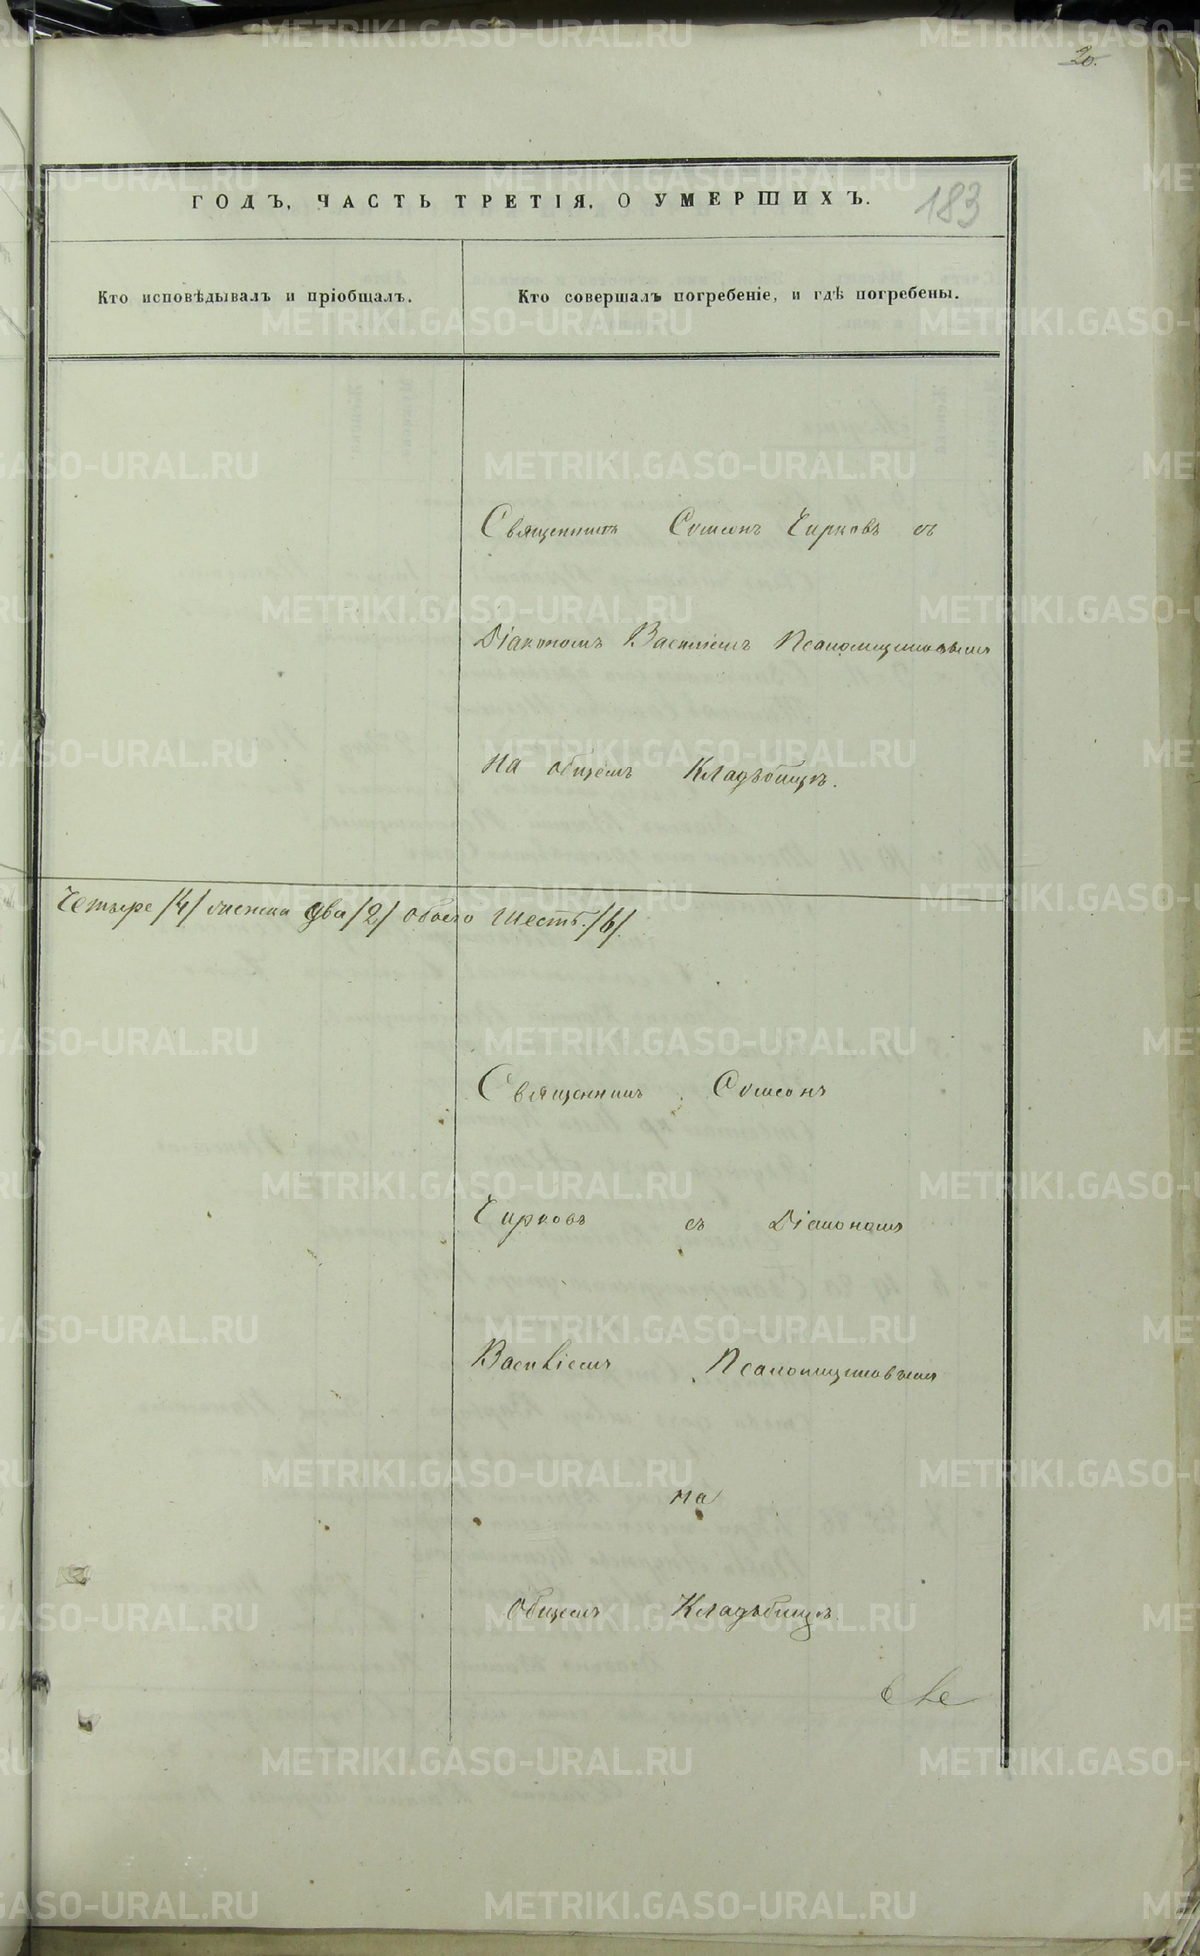 20.
ГОДЪ, ЧАСТЬ ТРЕТІЯ, О УМЕРШИХЪ.
183
Кто исповѣдывалъ и пріобщалъ.
Кто совершалъ погребеніе, и гдѣ погребены.
Священникъ Симеонъ Чирковъ съ
Діакономъ Василіемъ Псаломщиковымъ
на общемъ Кладъбищѣ.
Четыре /4/ женска два /2/ обоего шесть /6/.
Священникъ Симеонъ
Чирковъ съ Діакономъ
Василіемъ Псаломщиковымъ
на
общемъ Кладъбищѣ.
METRIKI.GASO-URAL.RU